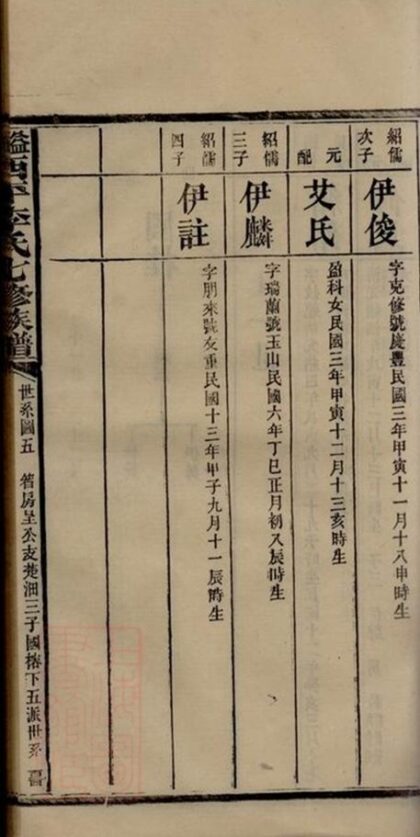 紹儒次子
伊俊
字克修號慶豐民國三年甲寅一月十八申時生
元配
艾氏
盈科女民國三年甲寅十二月十三亥時生
紹儒三子
伊麟
字瑞蘭號玉山民國六年丁巳正月初八辰時生
紹儒四子
伊註
字朋來號友重民國十三年甲子九月十一辰時生
氏七修族譜
世系圖五
舊房呈公支楚湘三子國榕下五派世系